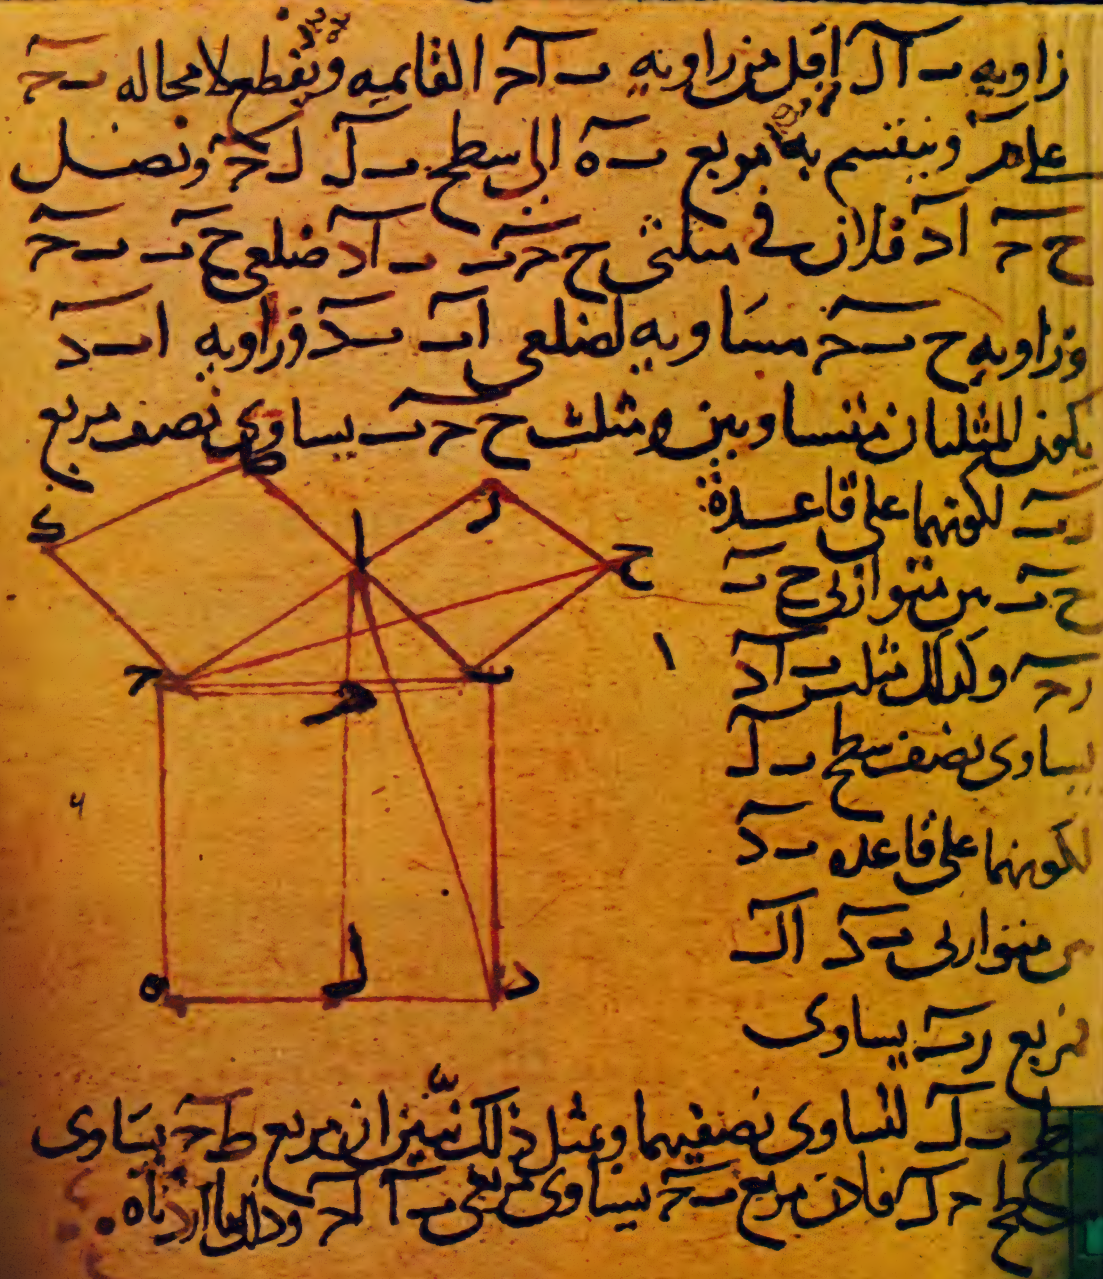 زاويه ب آ ل اقل من زاويه ب آ ح القايمه ويقطع لا محاله ب ح
على م وينقسم به مربع ب ه الى سطحى ب ل ل ح ونصل
ح ح ا د فلان فى مثلثى ح ح ب ب ا د ضلعى ح ب ب ح
وزاويه ح ب ح مساويه لضلعى ا ب ب د وزاويه ا ب د
يكون المثلثان متساويين ومثلث ح ح ب يساوى نصف مربع
ر ب لكونهما على قاعدة
ح ب بين متوازيى ح ب
ر ح وكذلك مثلث ب ا د
يساوى نصف سطح ب ل
لكونهما على قاعده ب د
بين متوازيى ب د ا ل
فمربع ر ب يساوى
سطح ب ل لتساوى نصفيهما وبمثل ذلك نبين ان مربع ط ح يساوى
سطح ح ل فاذن مربع ب ح يساوى مربعى ب ا ا ح وذلك ما اردناه
ط
ر
ى
ا
ح
ح
ب
م
ا
ه
ل
د